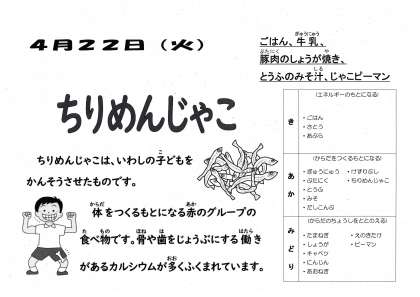 4月22日（火）
ごはん、牛乳、
豚肉のしょうが焼き、
とうふのみそ汁、じゃこピーマン
ちりめんじゃこ
ちりめんじゃこは、いわしの子どもを
かんそうさせたものです。
体をつくるもとになる赤のグループの
食べ物です。骨や歯をじょうぶにする働き
があるカルシウムが多くふくまれています。
き
（エネルギーのもとになる）
・ごはん
・さとう
・あぶら
あか
（からだをつくるもとになる）
・ぎゅうにゅう ・けずりぶし
・ぶたにく ・ちりめんじゃこ
・とうふ
・みそ
・だしこんぶ
みどり
（からだのちょうしをととのえる）
・たまねぎ ・えのきたけ
・しょうが ・ピーマン
・キャベツ
・にんじん
・あおねぎ